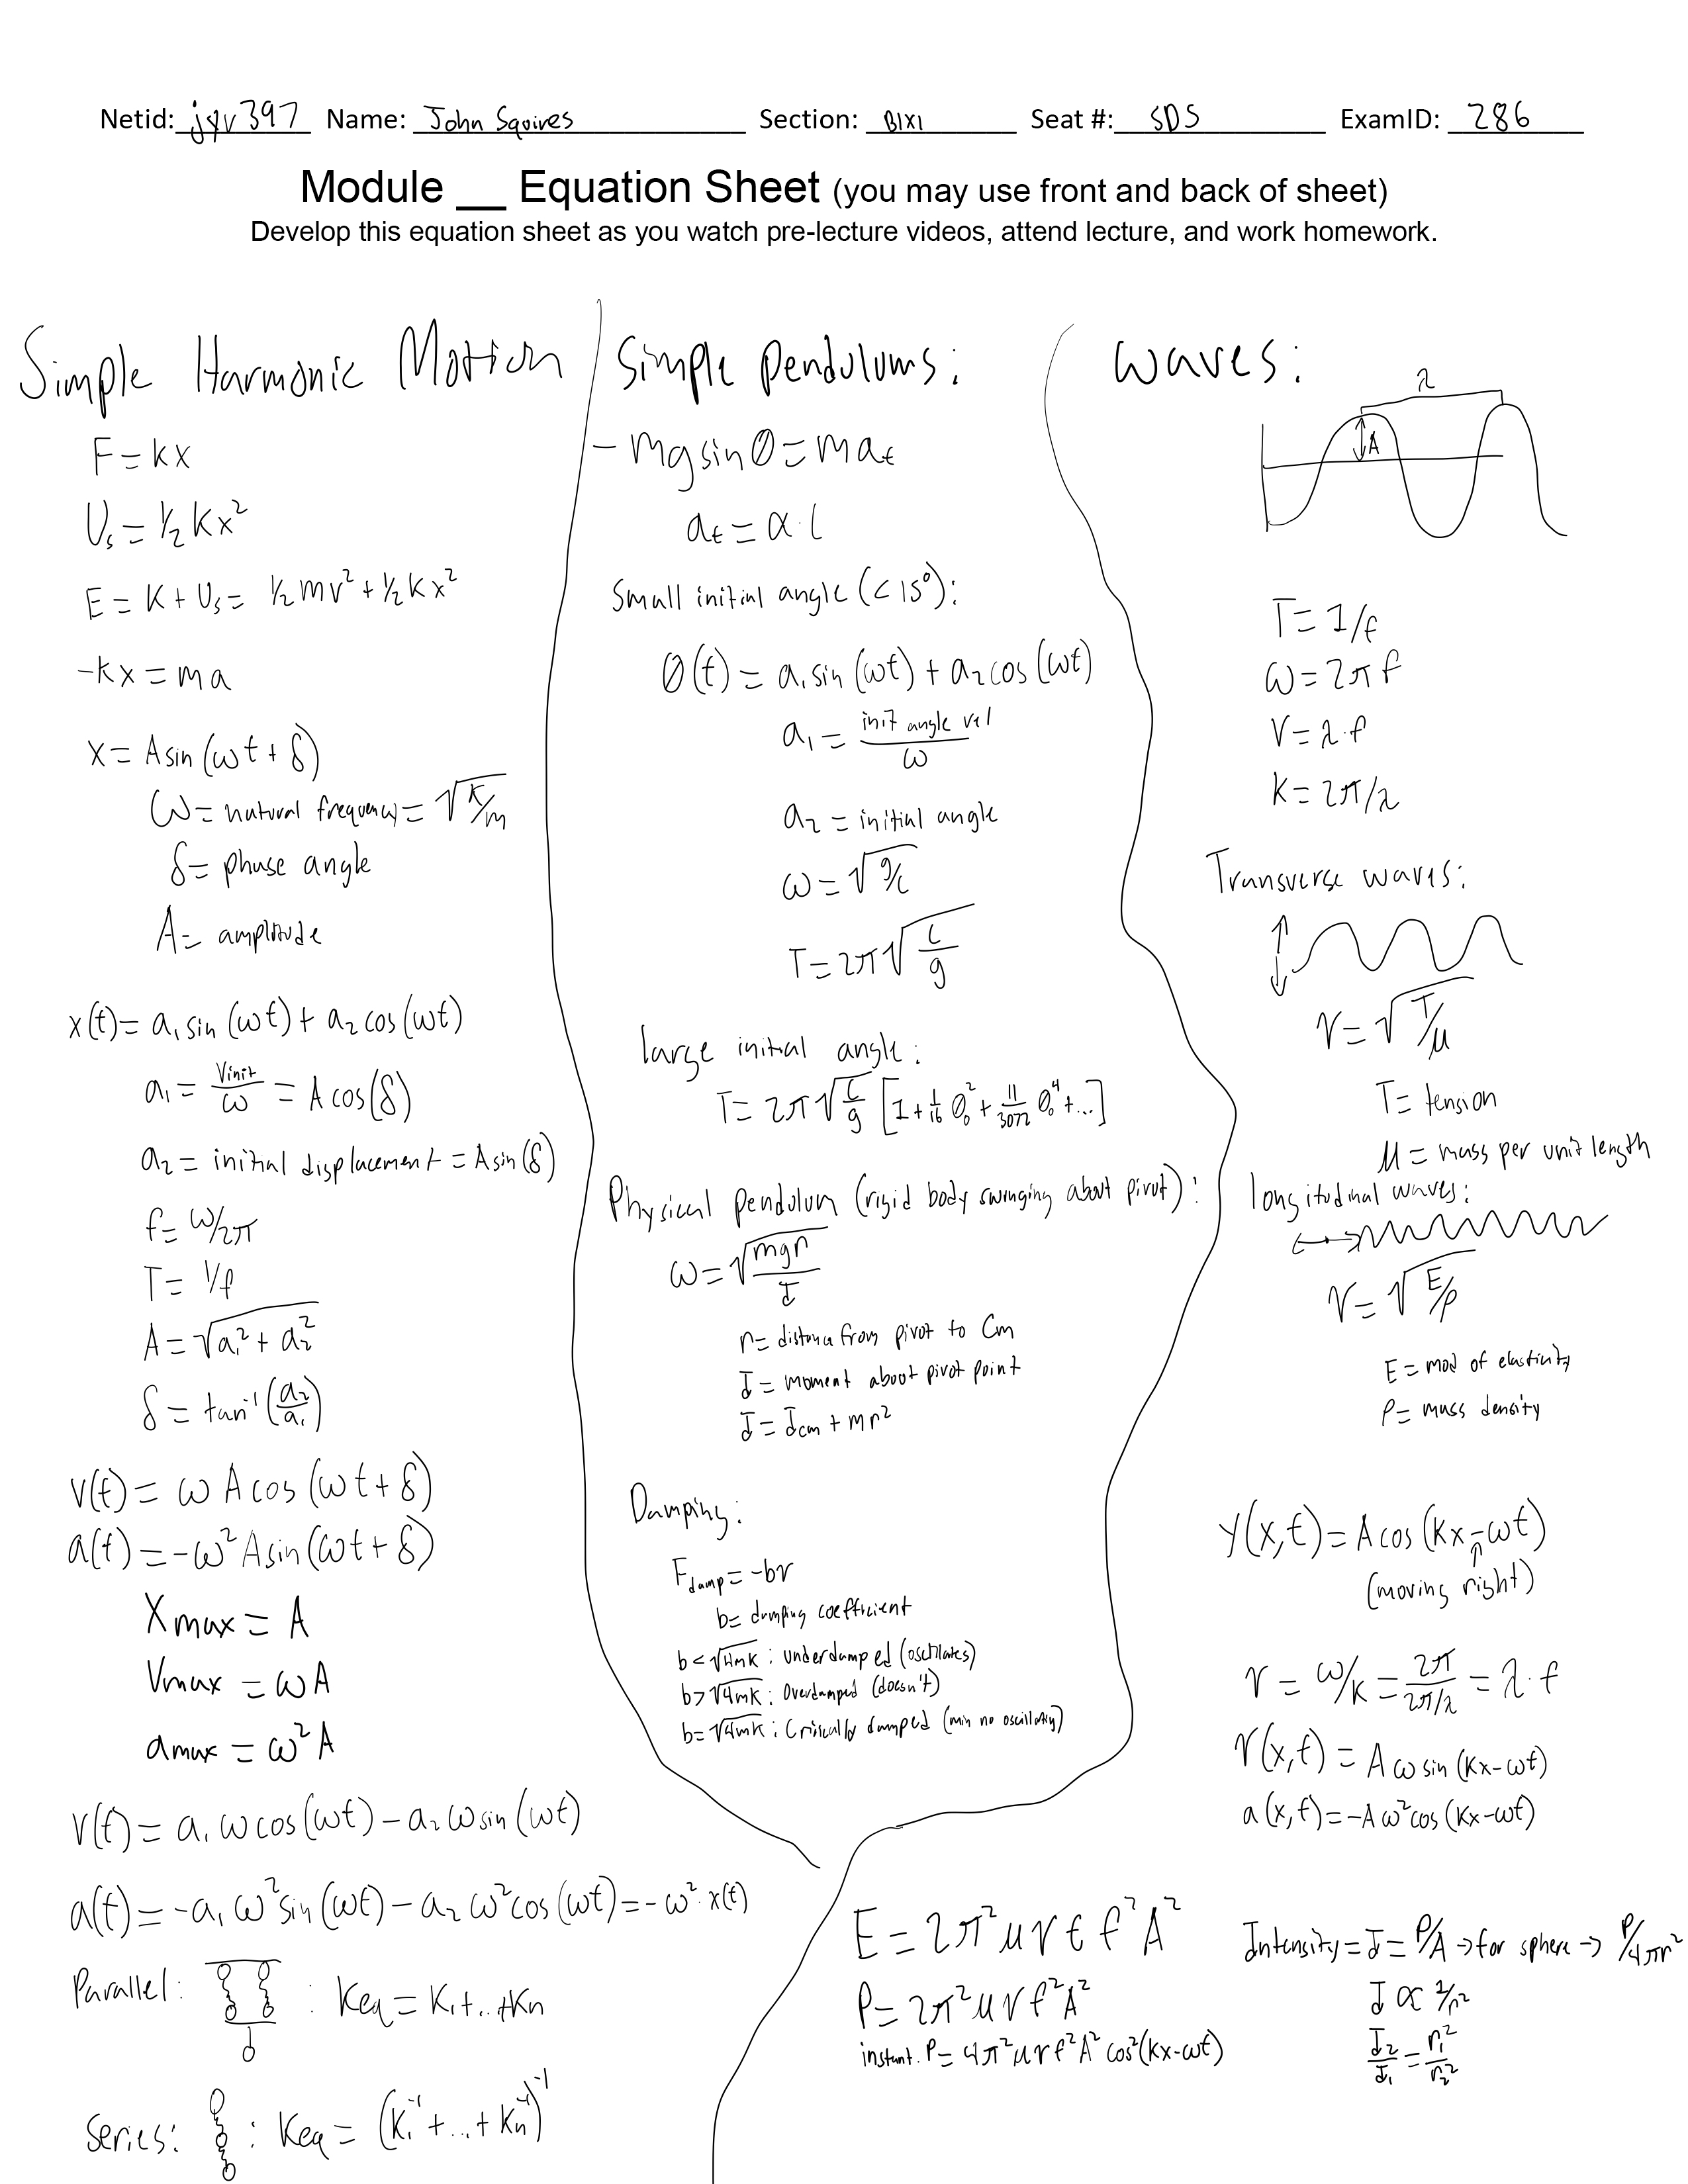 Netid: jyv397 Name: John Squires Section: B1X1 Seat #: SDS ExamID: 286
Module __ Equation Sheet (you may use front and back of sheet)
Develop this equation sheet as you watch pre-lecture videos, attend lecture, and work homework.
Simple Harmonic Motion
F = kx
Us = 1/2 kx²
E = K + Us = 1/2 mv² + 1/2 kx²
-kx = ma
x = A sin (ωt + δ)
ω = natural frequency = √(k/m)
δ = phase angle
A = amplitude
x(t) = a₁ sin (ωt) + a₂ cos (ωt)
a₁ = Vinit/ω = A cos(δ)
a₂ = initial displacement = A sin(δ)
f = ω/2π
T = 1/f
A = √(a₁² + a₂²)
δ = tan⁻¹(a₂/a₁)
v(t) = ωA cos (ωt + δ)
a(t) = -ω² A sin (ωt + δ)
Xmax = A
Vmax = ωA
amax = ω²A
v(t) = a₁ω cos (ωt) - a₂ω sin (ωt)
a(t) = -a₁ω² sin (ωt) - a₂ω² cos (ωt) = -ω²·x(t)
Parallel: : Keq = K₁+...+Kn
Series: : Keq = (K₁⁻¹ + ... + Kn⁻¹)⁻¹
Simple Pendulums:
-mg sin θ = ma_t
a_t = α·l
Small initial angle (<15°):
θ(t) = a₁ sin (ωt) + a₂ cos (ωt)
a₁ = init angle vel/ω
a₂ = initial angle
ω = √(g/L)
T = 2π√(L/g)
large initial angle:
T = 2π√(L/g) [1 + 1/16 θ₀² + 11/3072 θ₀⁴ + ...]
Physical pendulum (rigid body swinging about pivot):
ω = √(mgr/I)
r = distance from pivot to Cm
I = moment about pivot point
I = Icm + mr²
Damping:
Fdamp = -bv
b = damping coefficient
b < √4mk : underdamped (oscillates)
b > √4mk : Overdamped (doesn't)
b = √4mk : Critically damped (min no oscillating)
Waves:
λ
A
T = 1/f
ω = 2πf
V = λ·f
K = 2π/λ
Transverse waves:
V = √(T/μ)
T = tension
μ = mass per unit length
longitudinal waves:
V = √(E/ρ)
E = mod of elasticity
ρ = mass density
y(x,t) = A cos (kx - ωt)
(moving right)
V = ω/k = 2π/(2π/λ) = λ·f
V(x,t) = Aω sin (kx-ωt)
a(x,t) = -Aω² cos (kx-ωt)
E = 2π²μvt f²A²
P = 2π²μv f²A²
instant. P = 4π²μv f²A² cos²(kx-ωt)
Intensity = I = P/A → for sphere → P/4πr²
I ∝ 1/r²
I₂/I₁ = r₁²/r₂²